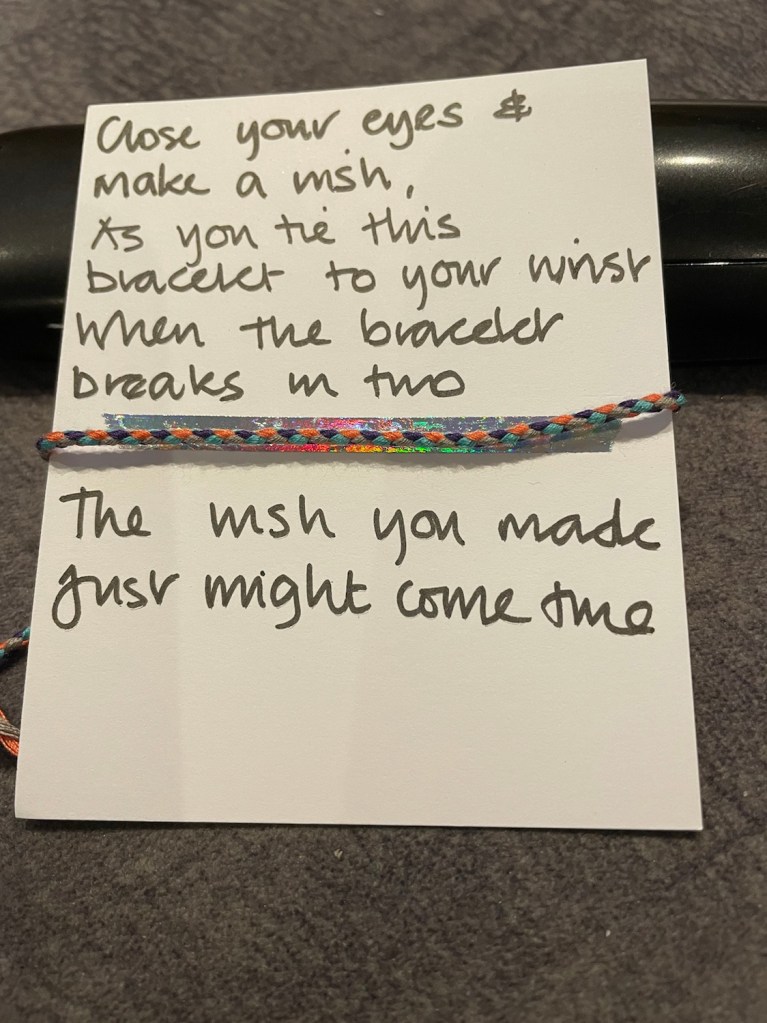 Close your eyes &
make a wish,
As you tie this
bracelet to your wrist
When the bracelet
breaks in two
The wish you made
just might come true